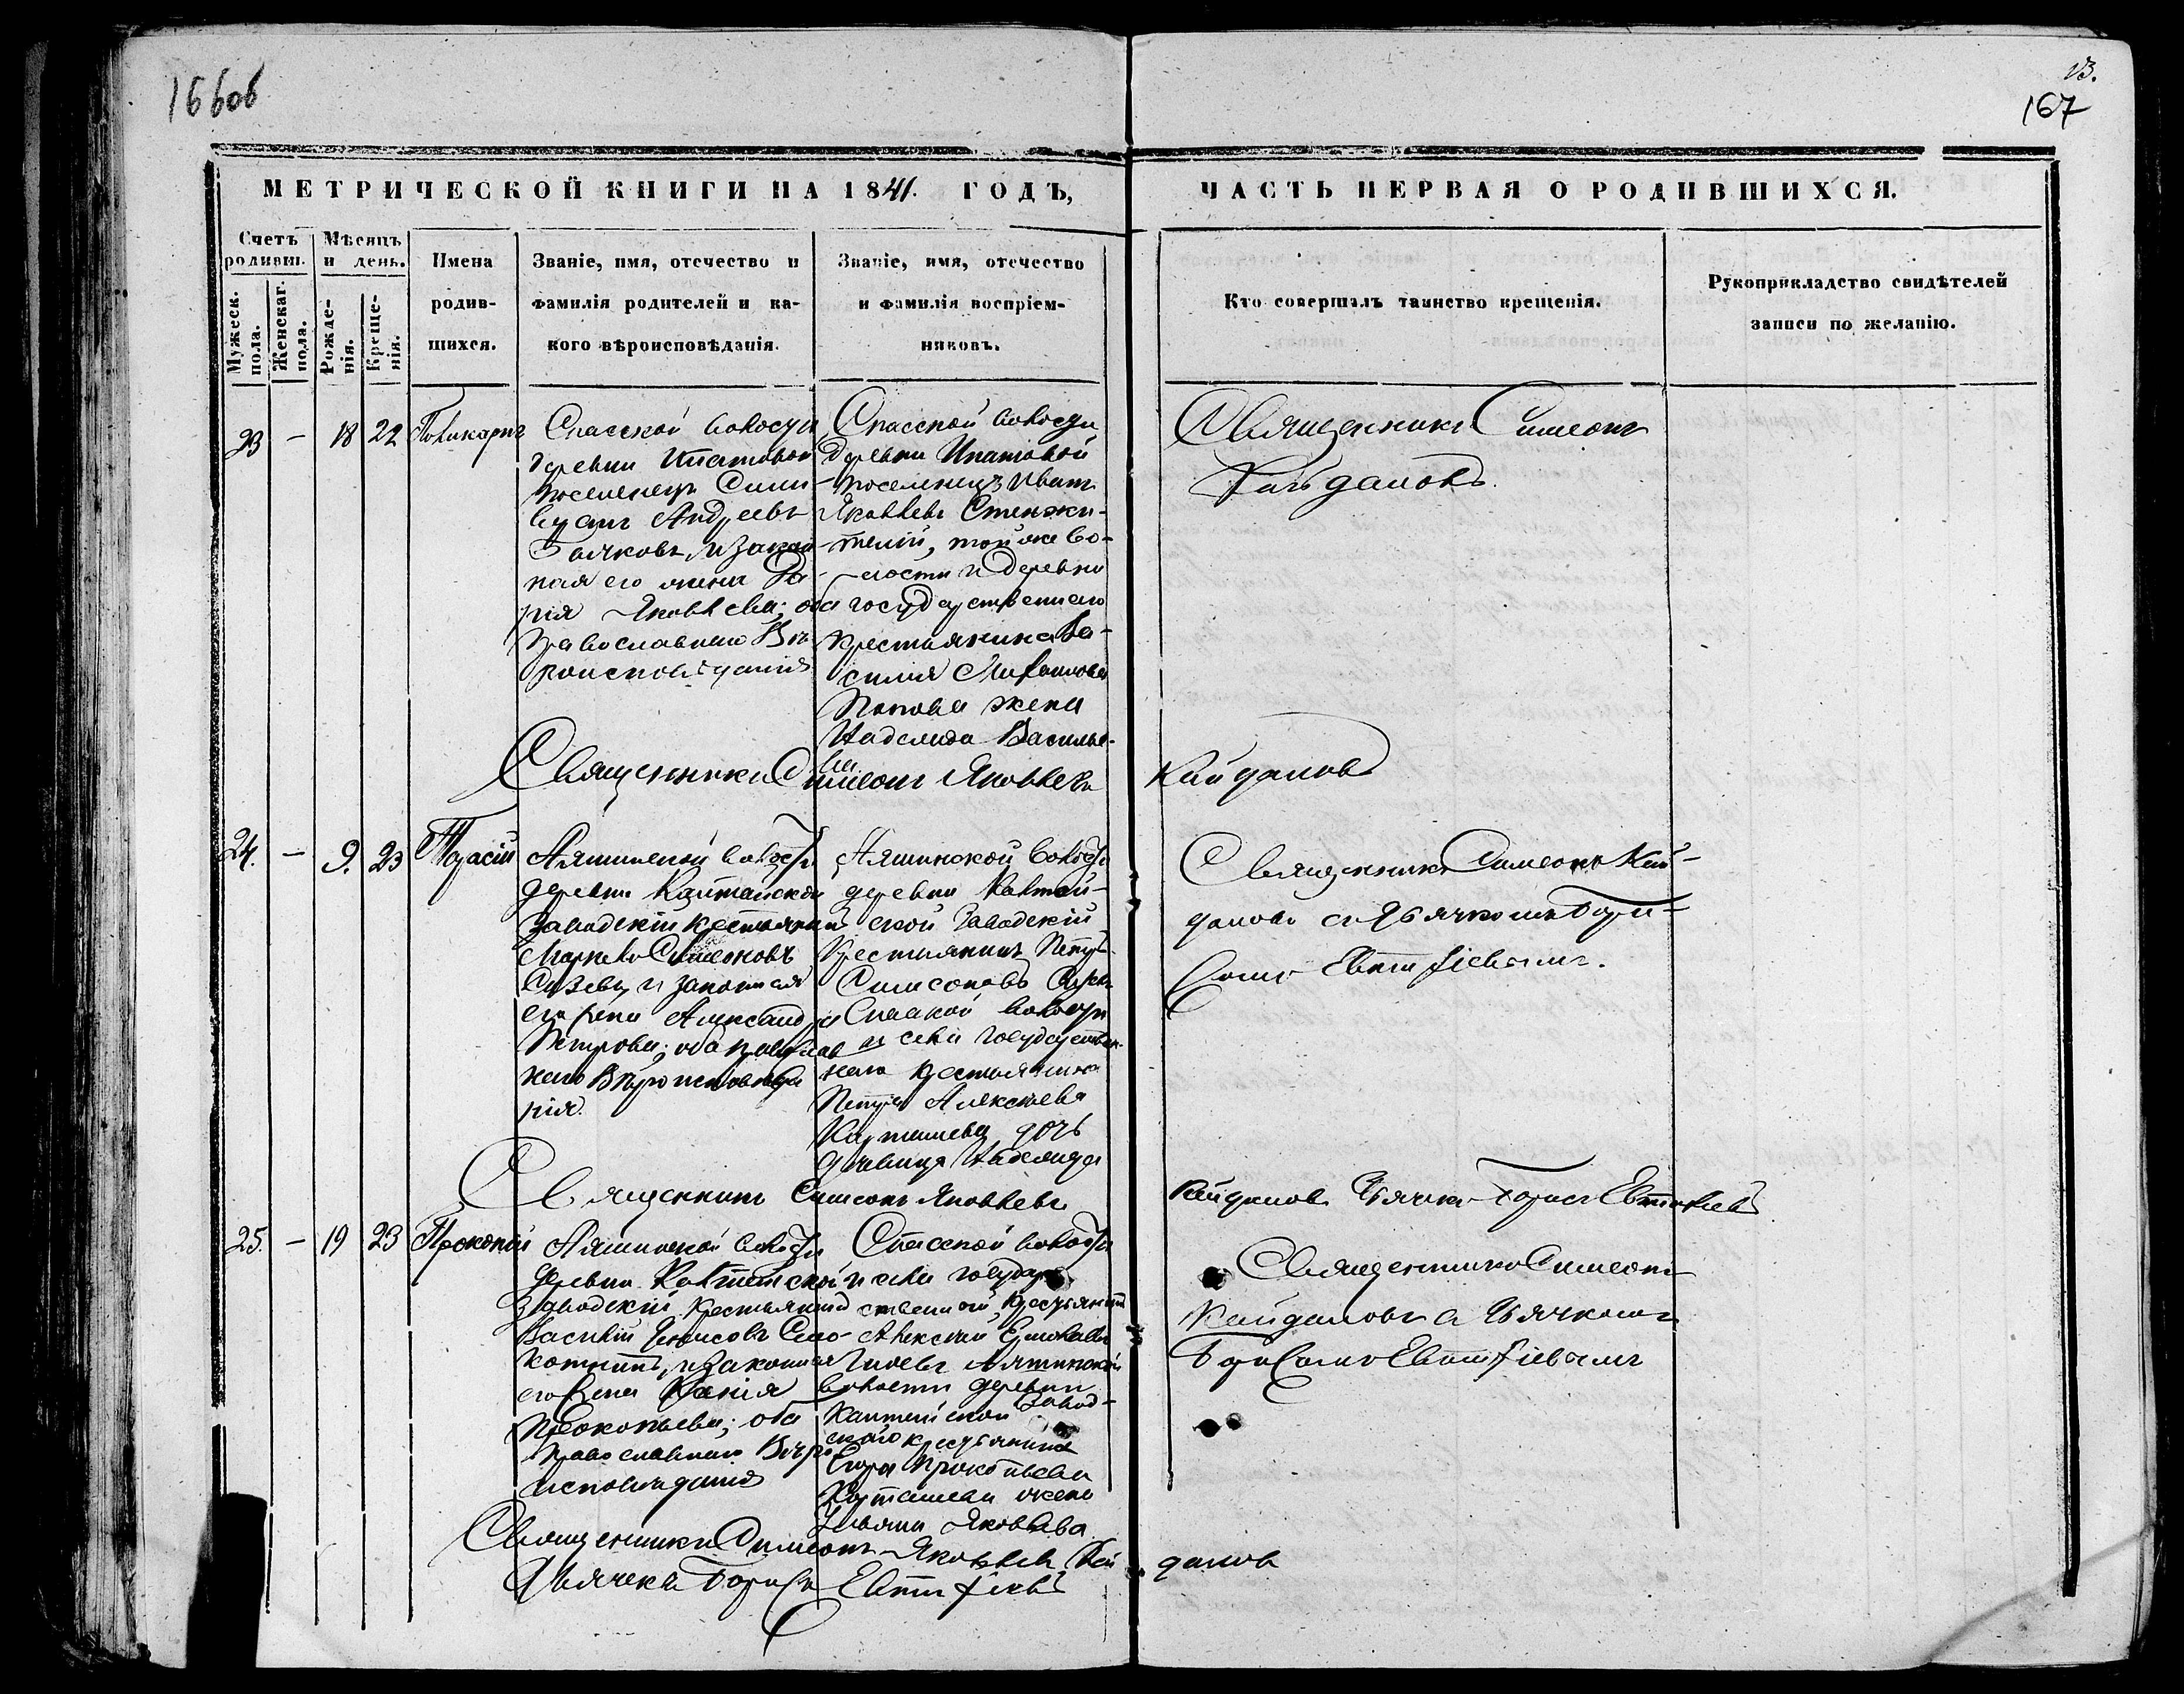 166об
13.
167
МЕТРИЧЕСКОЙ КНИГИ НА 1841. ГОДЪ,
ЧАСТЬ ПЕРВАЯ О РОДИВШИХСЯ.
Счетъ родивш.
Мужеск. пола.
Женскаг. пола.
Мѣсяцъ и день.
Рожде-
нія.
Креще-
нія.
Имена
родив-
шихся.
Званіе, имя, отечество и
фамилія родителей и ка-
кого вѣроисповѣданія.
Званіе, имя, отечество
и фамилія воспріем-
никовъ.
Кто совершалъ таинство крещенія.
Рукоприкладство свидѣтелей
записи по желанію.
23 – 18 22 Поликарпъ
Спасской волости
деревни Ипатовой
поселенецъ
Андреевъ
и закон-
ная его жена Да-
рія Яковлева; оба
православнаго Вѣ-
роисповѣданія
Спасской волости
деревни Ипатовой
поселенецъ Иванъ
Яковлевъ
той же во-
лости и деревни
государственнаго
крестьянина Ва-
силія Михайлова
Попова жена
Надежда Василье-
ва
Священникъ Симеонъ
Кайдаловъ.
Священникъ Симеонъ Яковлевъ Кайдаловъ
24. – 9. 23 Тарасій
волости
деревни
заводскій крестьянинъ
Симеоновъ
и законная
его жена Александра
Петрова; оба православ
наго Вѣроисповѣда
нія.
волости
деревни
ской заводскій
крестьянинъ Петръ
Симеоновъ
Спасской волости
и села государствен-
наго крестьянина
Петра Алексѣева
Карташева дочь
дѣвица Надежда
Священникъ Симеонъ Кай-
даловъ съ дьячкомъ Бори-
сомъ Евтифіевымъ.
Священникъ Симеонъ Яковлевъ Кайдаловъ Дьячекъ Борисъ Евтифіевъ
25. – 19 23 Прокопій
волости
деревни
заводскій крестьянинъ
Василій
и законная
его жена
Прокопьева; оба
православнаго Вѣро
исповѣданія
Спасской волости
и села государ-
ственный крестьянинъ
Алексѣй
волости деревни
завод-
скаго крестьянина
Егора Прокопьева
жена
Ульяна Яковлева
Священникъ Симеонъ
Кайдаловъ съ Дьячкомъ
Борисомъ Евтифіевымъ
Священникъ Симеонъ Яковлевъ Кайдаловъ
Дьячекъ Борисъ Евтифіевъ